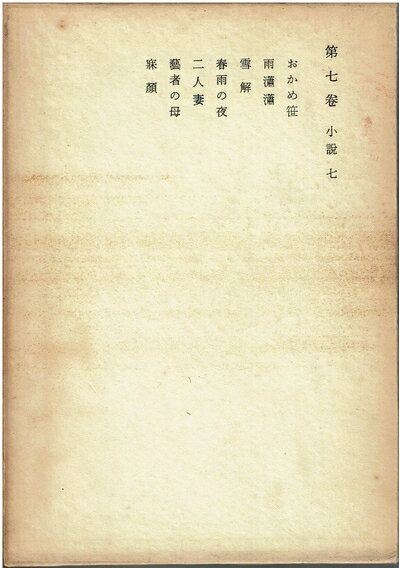 第七卷 小説 七
おかめ笹
雨瀟瀟
雪解
春雨の夜
二人妻
藝者の母
寐顏